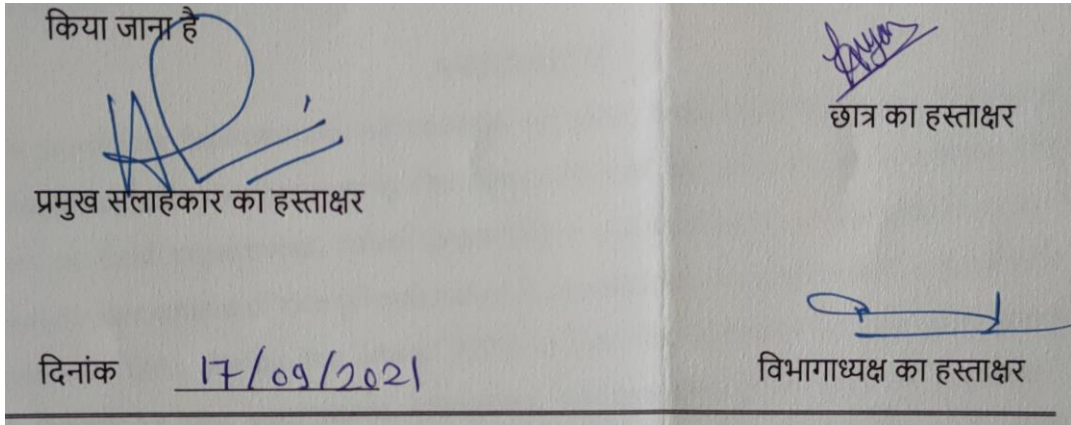 किया जाना है
छात्र का हस्ताक्षर
प्रमुख सलाहकार का हस्ताक्षर
दिनांक 17/09/2021
विभागाध्यक्ष का हस्ताक्षर